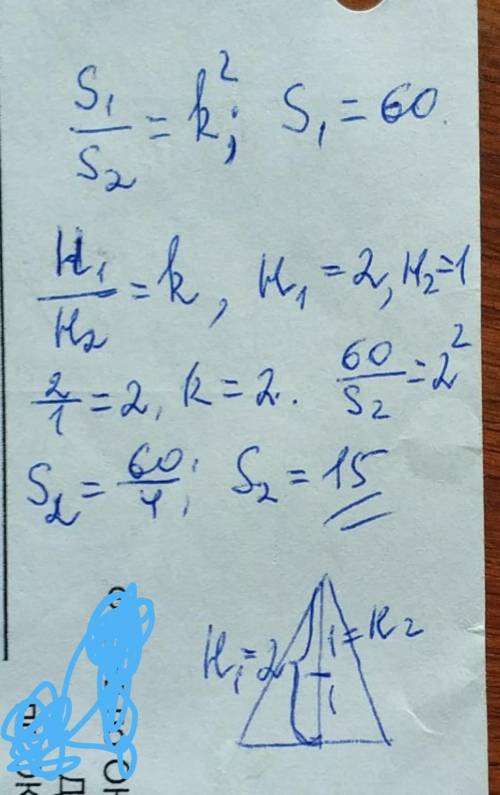 S₁/S₂ = k²; S₁ = 60.
H₁/H₂ = k, H₁ = 2, H₂ = 1
2/1 = 2, k = 2. 60/S₂ = 2²
S₂ = 60/4; S₂ = 15
H₁ = 2 1 = H₂
1